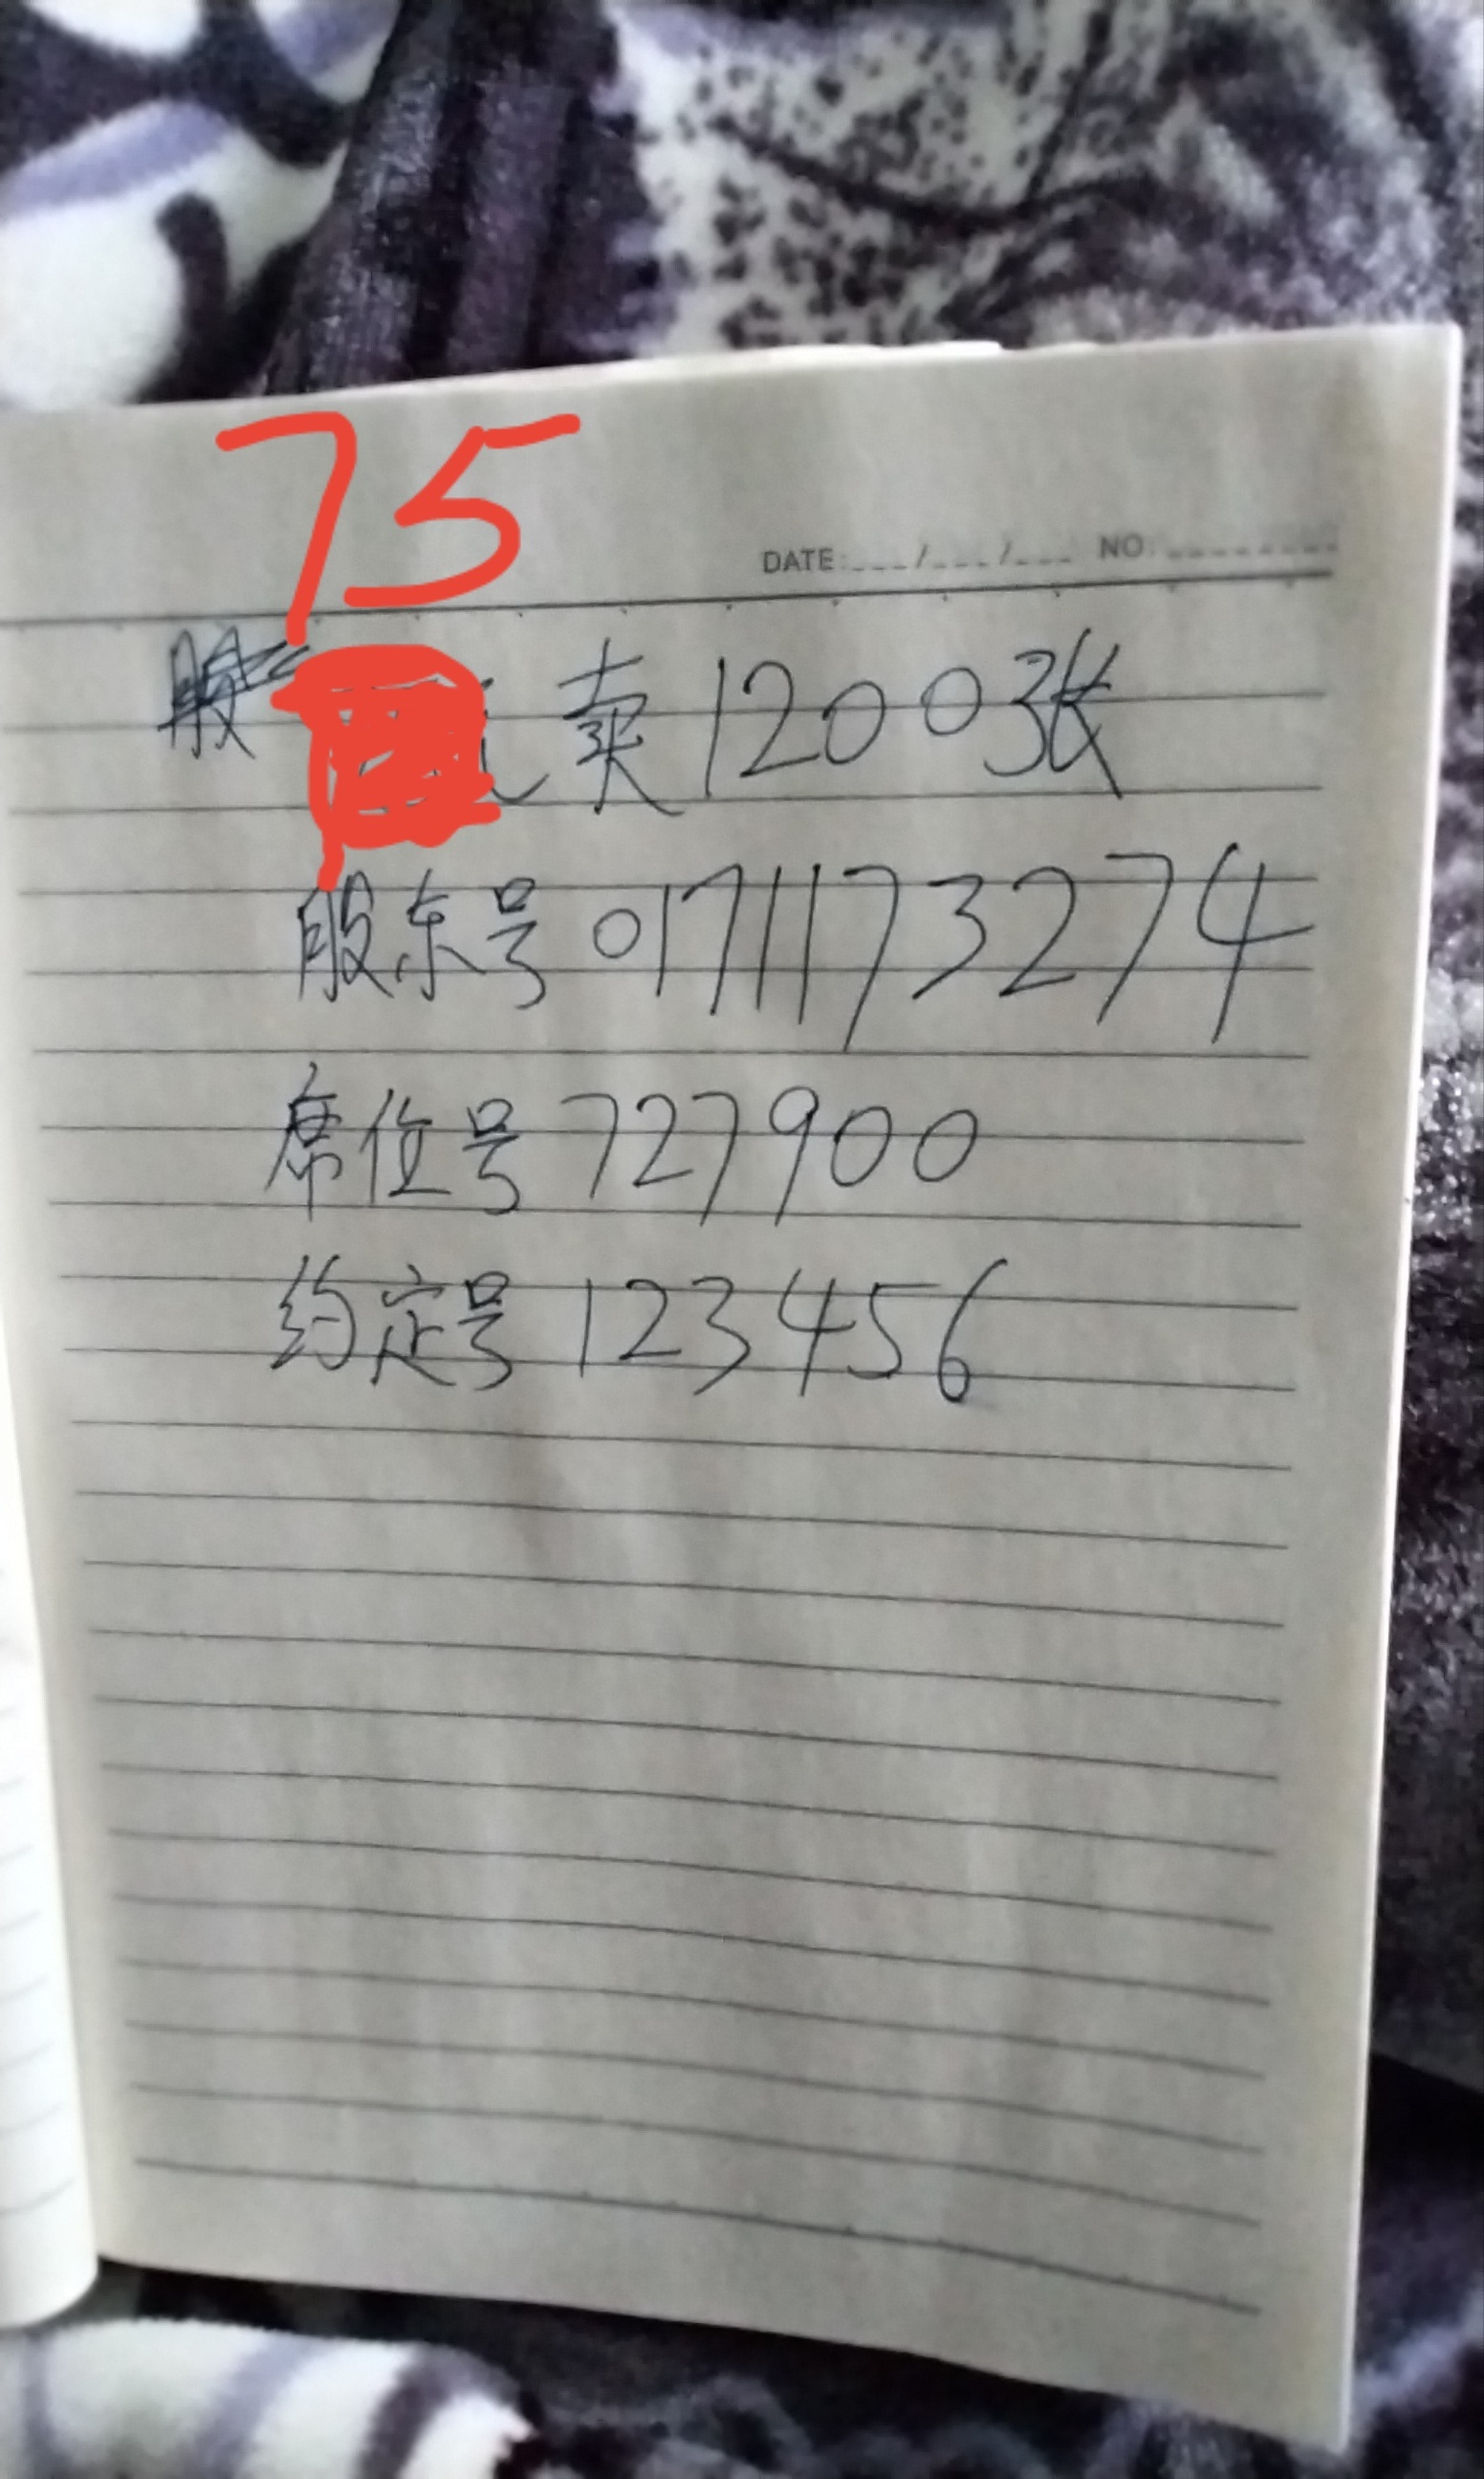 75
DATE: / / NO.
卖1200张
股东号 0171173274
席位号 727900
约定号 123456